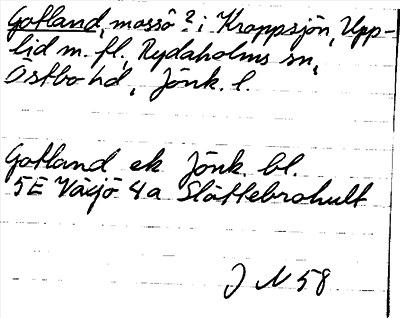 Gotland, mossö? i Kroppsjön, Upp-
lid m. fl., Rydaholms sn,
Östbo hd, Jönk. l.
Gotland ek Jönk. bl.
5E Växjö 4a Slättebrohult
J N 58